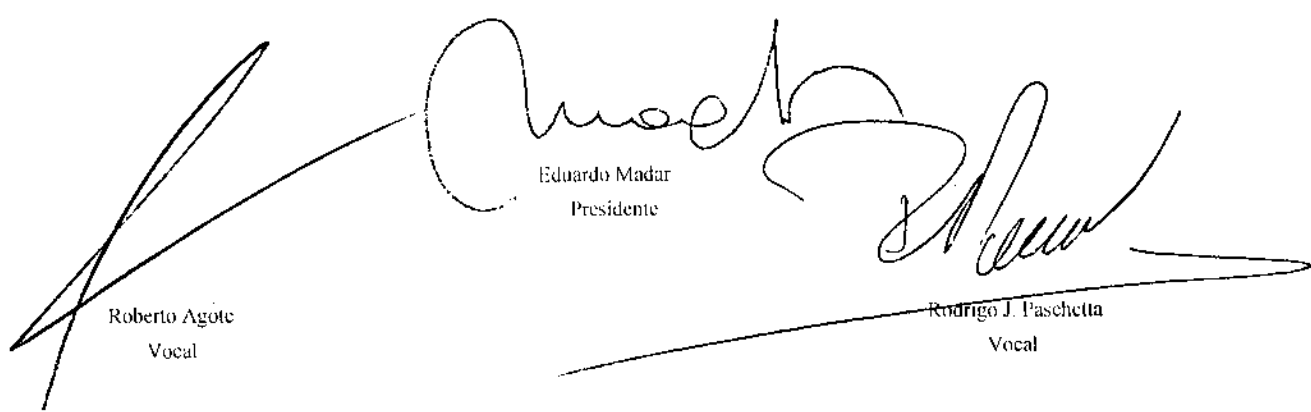 Eduardo Madar
Presidente
Roberto Agote
Vocal
Rodrigo J. Paschetta
Vocal